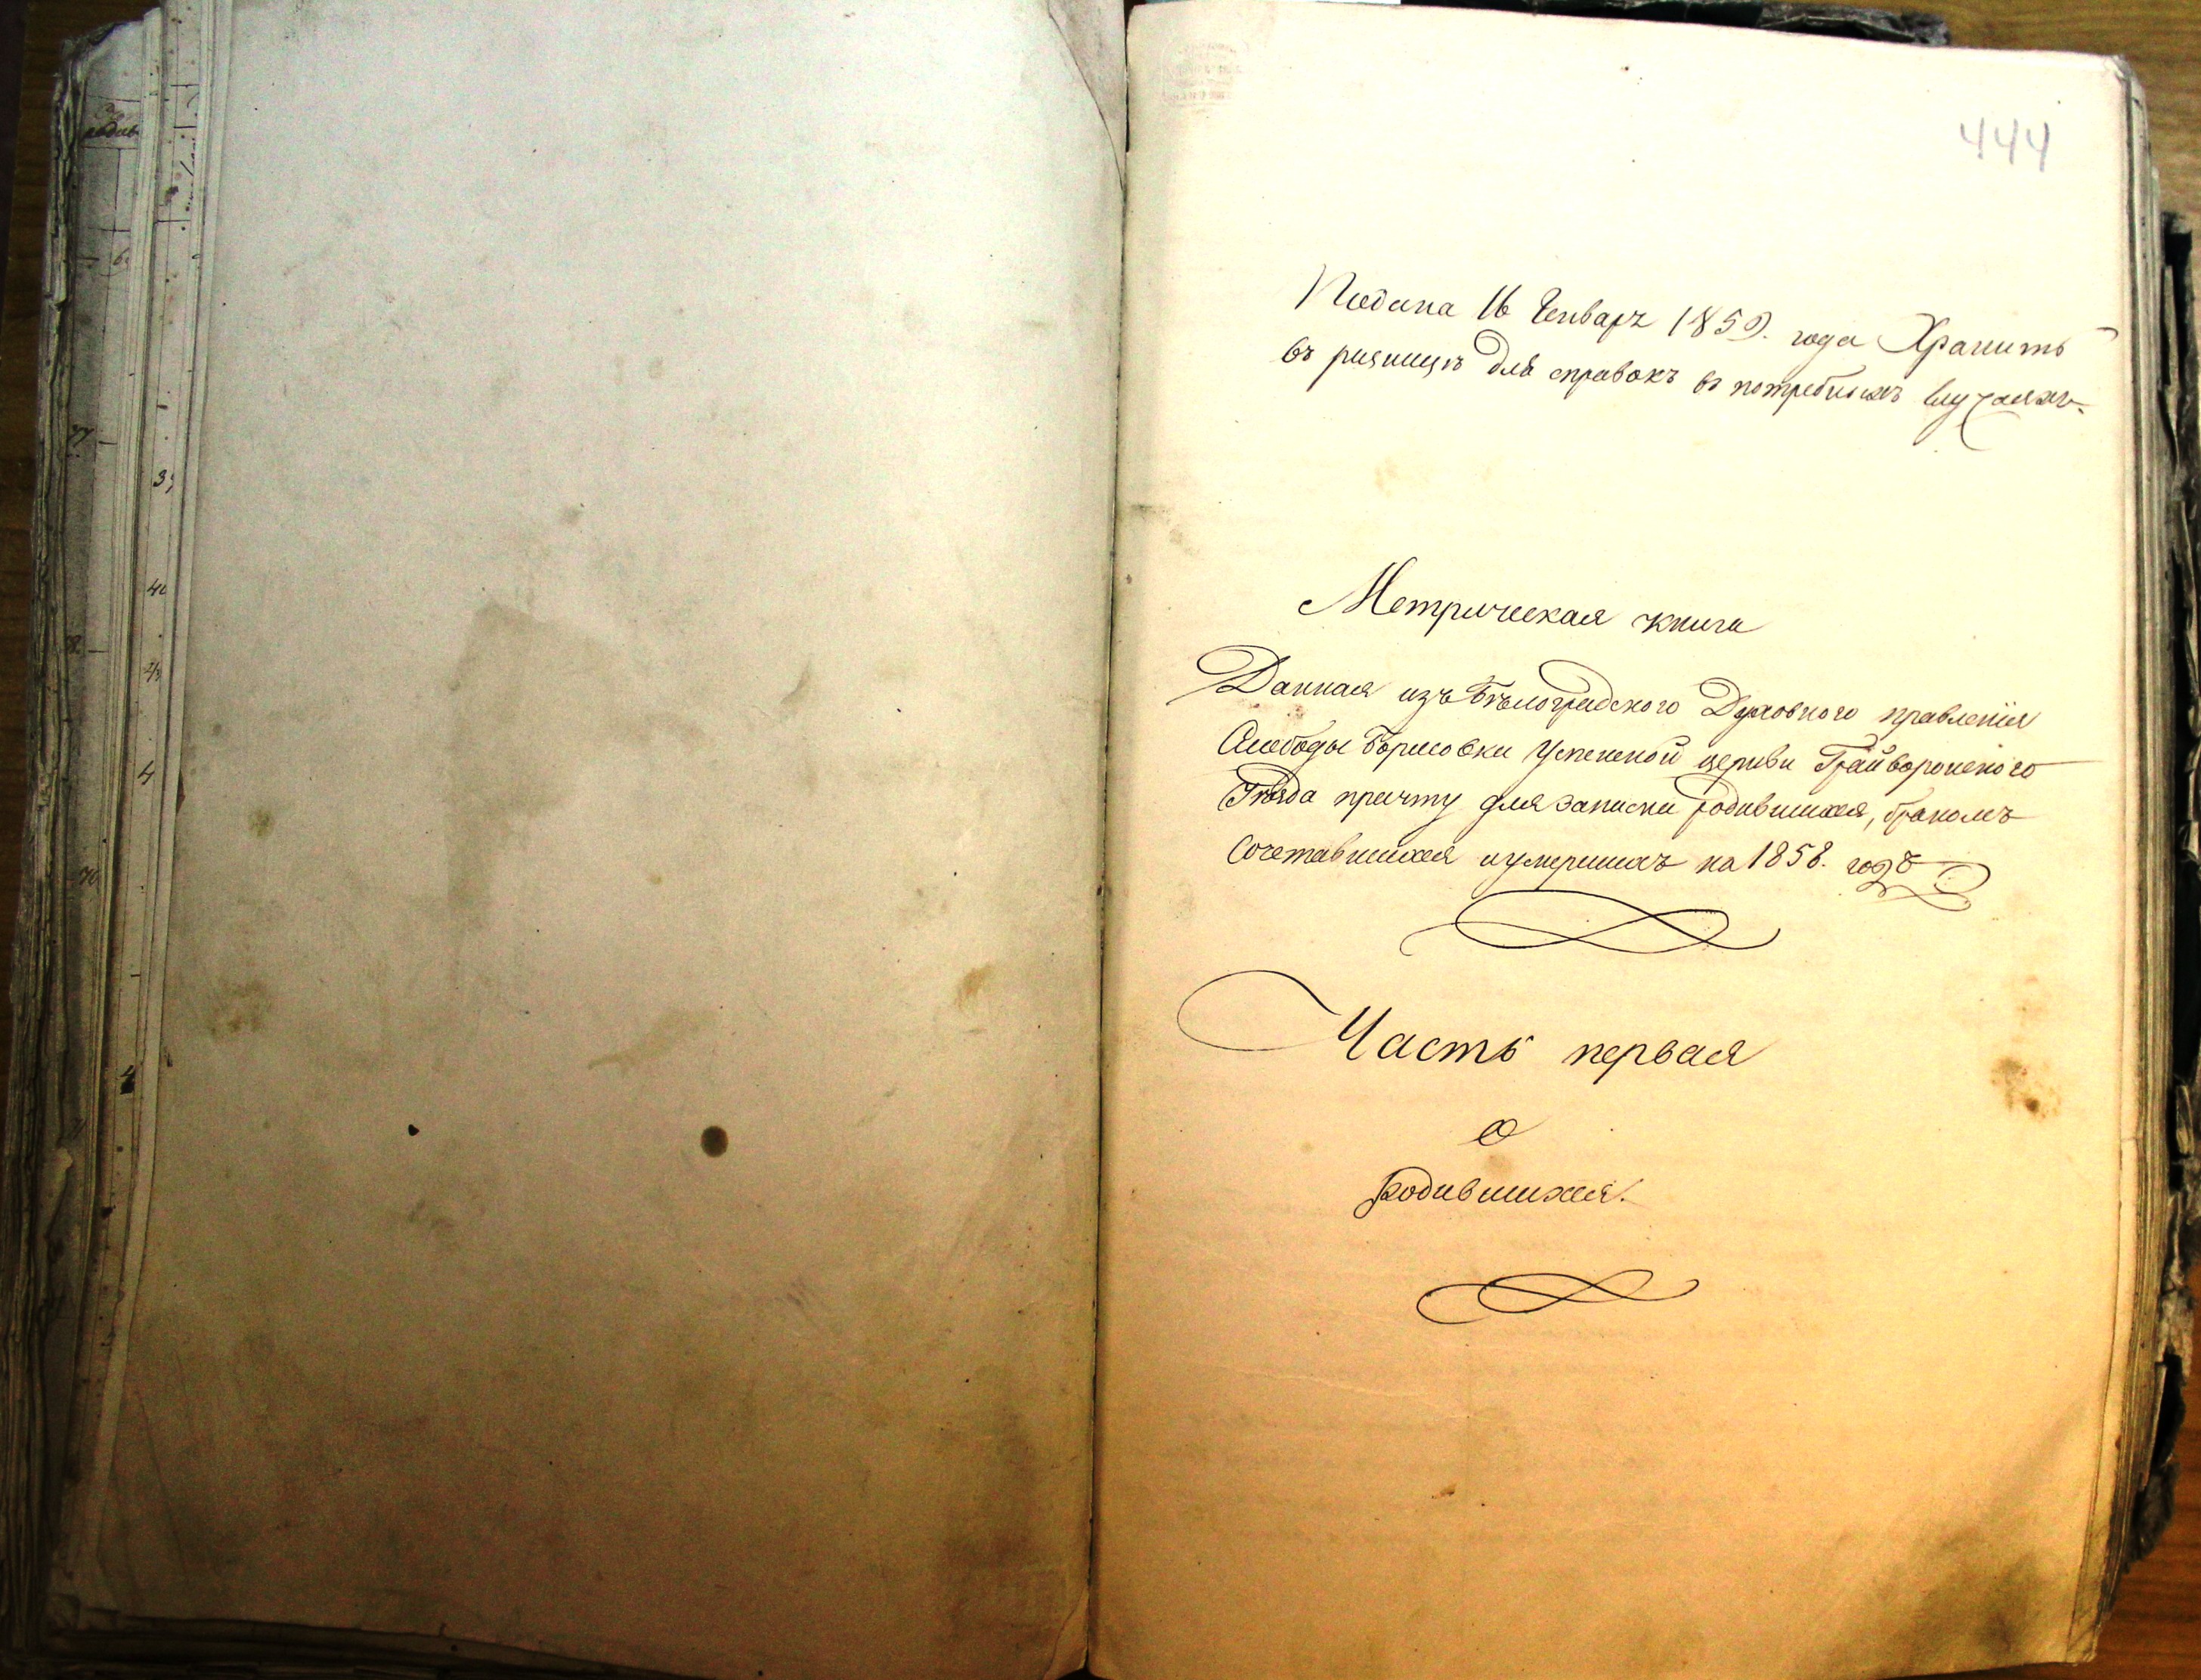 444
Подана 16 Генваря 1859. года Хранить
въ ризницѣ для справокъ въ потребныхъ случаяхъ.
Метрическая книга
Данная изъ Бѣлоградского Духовного правленія
Слободы Борисовки Успенской церкви Грайворонского
уѣзда причту для записки родившихся, бракомъ
сочетавшихся и умершихъ на 1858. годъ
Часть первая
о
родившихся.